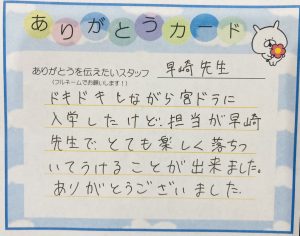 ありがとうカード
ありがとうを伝えたいスタッフ 早崎先生
(フルネームでお願いします!)
ドキドキしながら宮ドラに
入学したけど、担当が早崎
先生で、とても楽しく落ちつ
いてうけることが出来ました。
ありがとうございました。